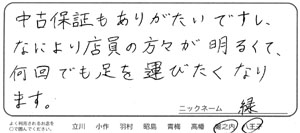 中古保証もありがたいですし、
なにより店員の方々が明るくて、
何回でも足を運びたくなり
ます。
ニックネーム 緑
よく利用されるお店を
○で囲んでください。
立川 小作 羽村 昭島 青梅 高幡 堀之内 八王子